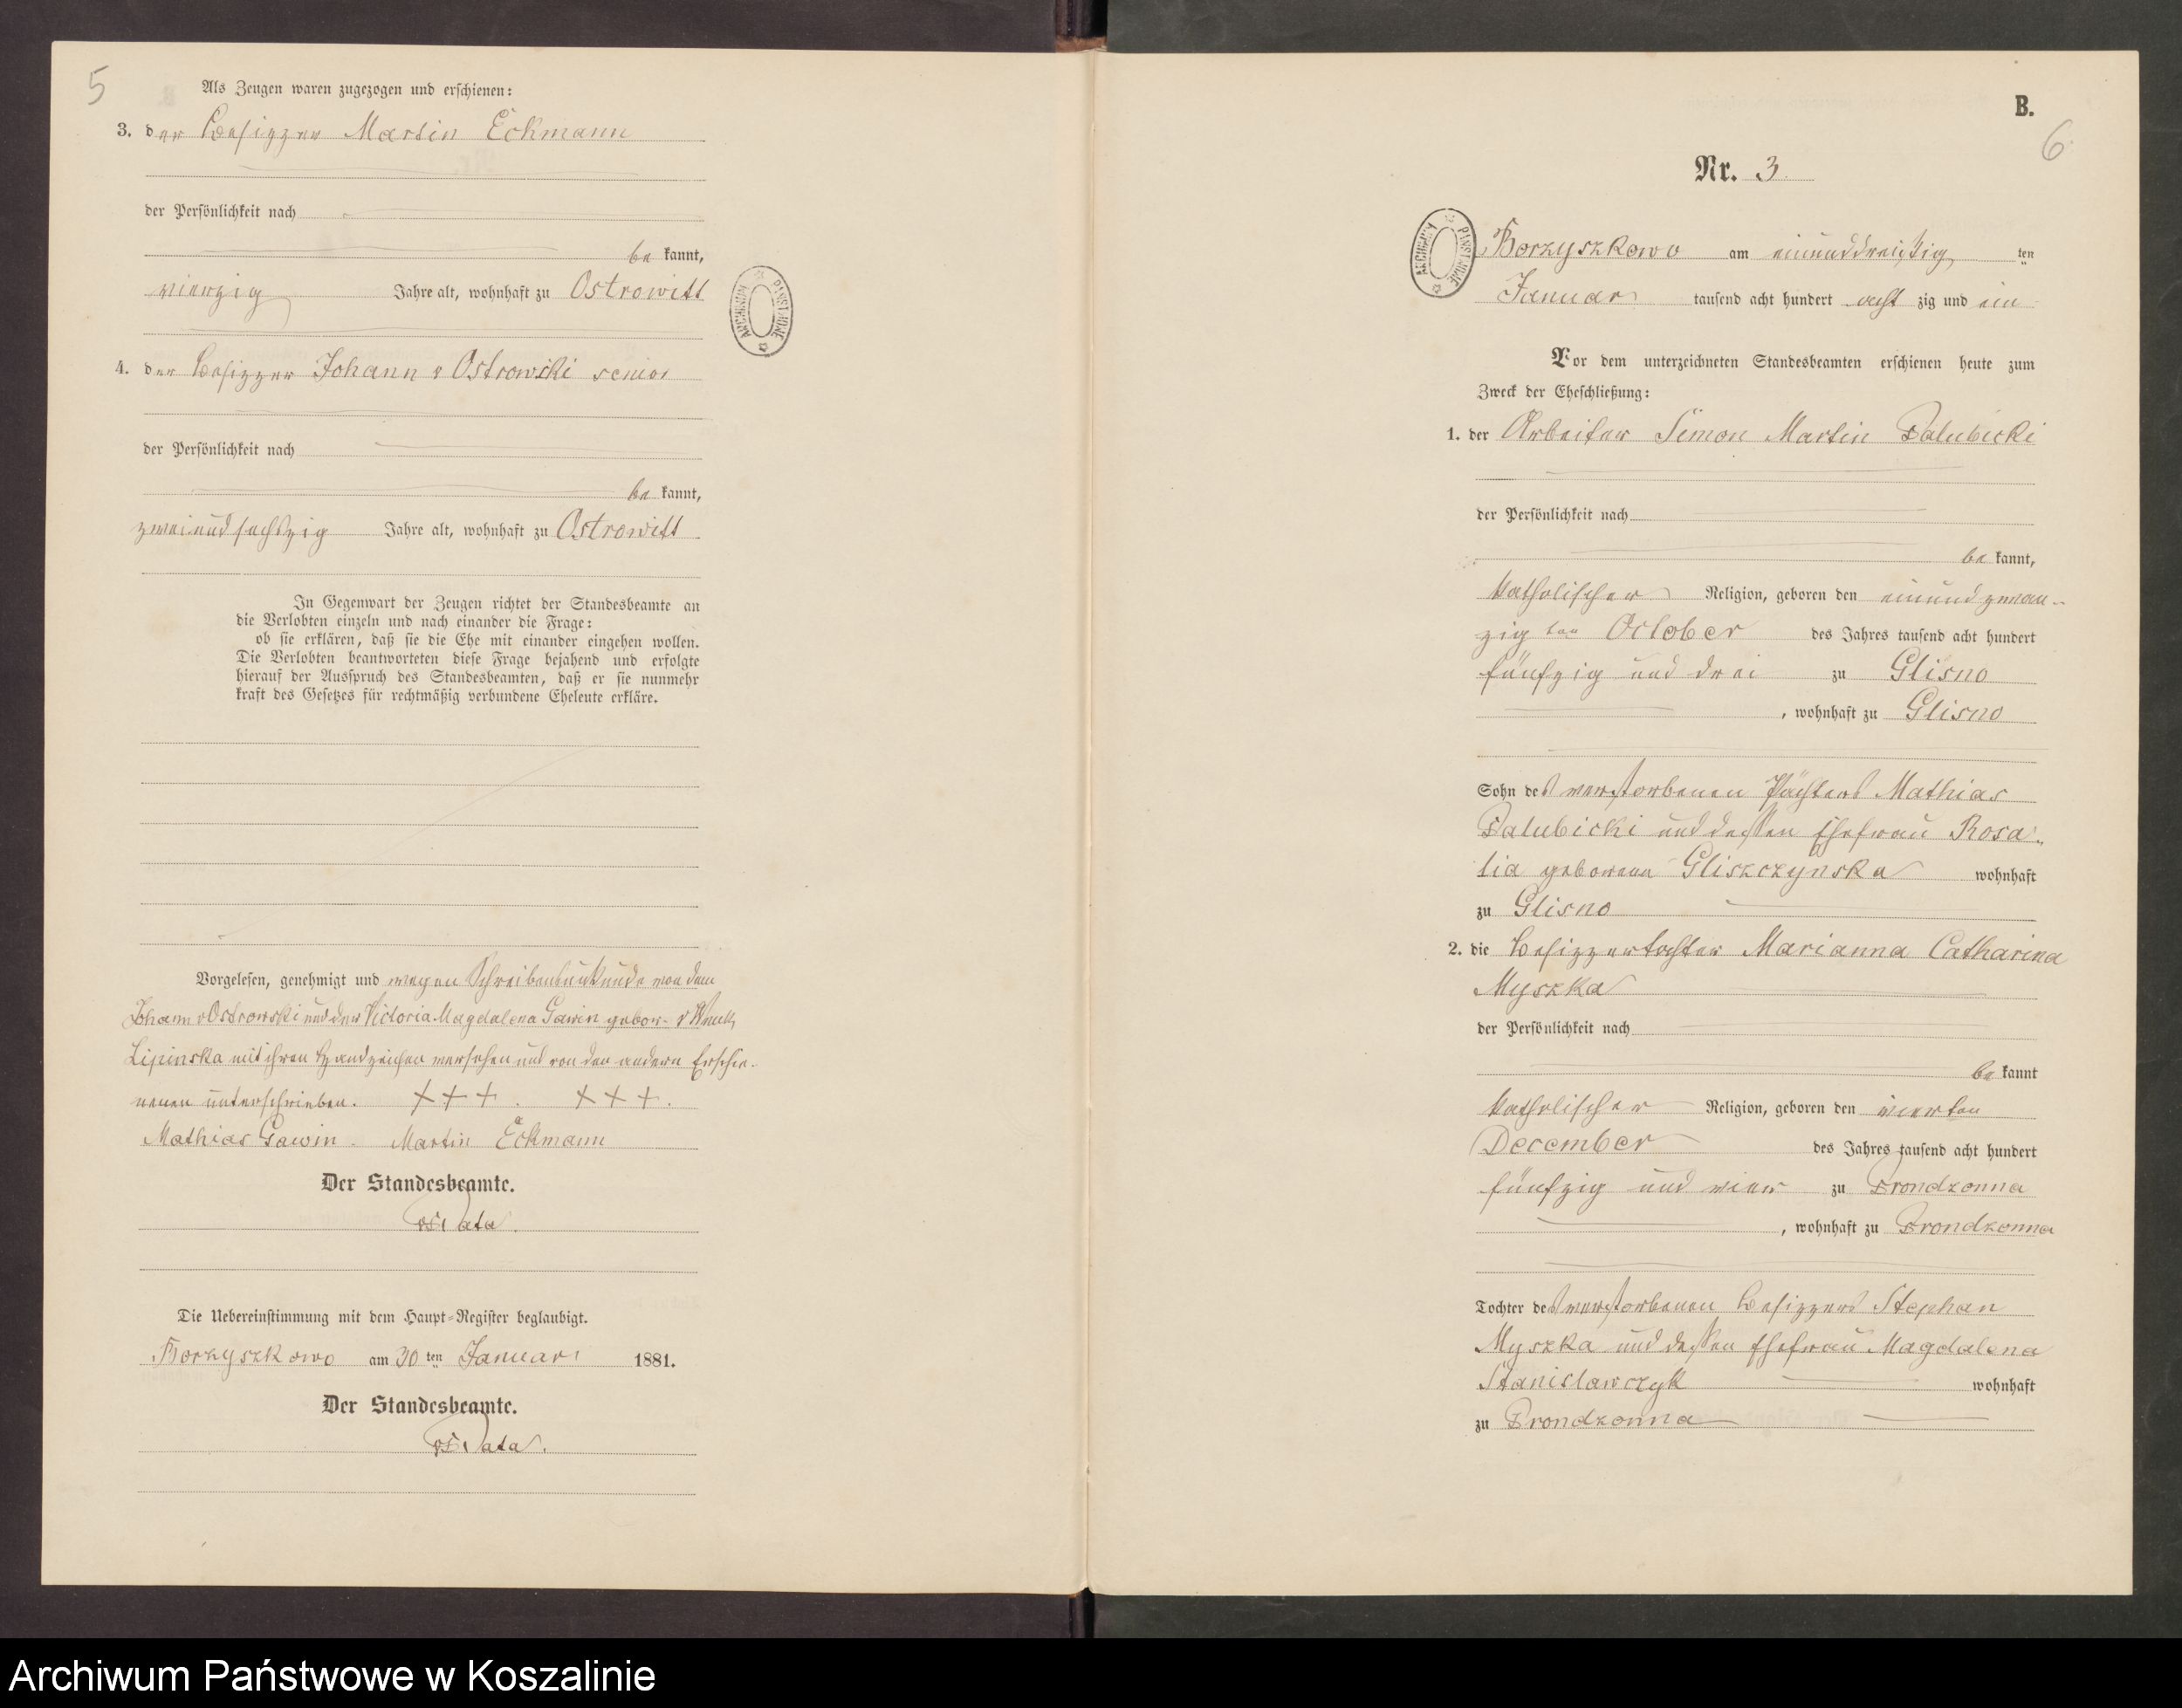 5
Als Zeugen waren zugezogen und erschienen:
3. der Besitzer Martin Eckmann
der Persönlichkeit nach
be kannt,
vierzig Jahre alt, wohnhaft zu Ostrowitt
4. der Besitzer Johann v Ostrowski senior
der Persönlichkeit nach
be kannt,
zweiundsechszig Jahre alt, wohnhaft zu Ostrowitt
In Gegenwart der Zeugen richtet der Standesbeamte an
die Verlobten einzeln und nach einander die Frage:
ob sie erklären, daß sie die Ehe mit einander eingehen wollen.
Die Verlobten beantworteten diese Frage bejahend und erfolgte
hierauf der Ausspruch des Standesbeamten, daß er sie nunmehr
kraft des Gesetzes für rechtmäßig verbundene Eheleute erkläre.
Vorgelesen, genehmigt und wegen Schreibensunkunde von dem
Johann v Ostrowski und der Victoria Magdalena Gawin gebor-
Lipinska mit ihren Handzeichen versehen und von den andern Erschie-
nenen unterschrieben. +++. +++.
Mathias Gawin. Martin Eckmann
Der Standesbeamte.
Die Uebereinstimmung mit dem Haupt-Register beglaubigt.
Borzyszkowo am 30 ten Januar 1881.
Der Standesbeamte.
ARCHIWUM PAŃSTWOWE
B.
6
Nr. 3.
ARCHIWUM PAŃSTWOWE
Borzyszkowo am einunddreißig ten
Januar tausend acht hundert acht zig und ein
Vor dem unterzeichneten Standesbeamten erschienen heute zum
Zweck der Eheschließung:
1. der Arbeiter Simon Martin Palubicki
der Persönlichkeit nach
be kannt,
katholischer Religion, geboren den einundzwan-
zig ten October des Jahres tausend acht hundert
fünfzig und drei zu Glisno
, wohnhaft zu Glisno
Sohn des verstorbenen Pächters Mathias
Palubicki und dessen Ehefrau Rosa-
lia geborene Gliszczynska wohnhaft
zu Glisno
2. die Besitzertochter Marianna Catharina
Myszka
der Persönlichkeit nach
be kannt
katholischer Religion, geboren den vierten
December des Jahres tausend acht hundert
fünfzig und vier zu Prondzonna
, wohnhaft zu Prondzonna
Tochter des verstorbenen Besitzers Stephan
Myszka und dessen Ehefrau Magdalena
Stanislawczyk wohnhaft
zu Prondzonna
Archiwum Państwowe w Koszalinie